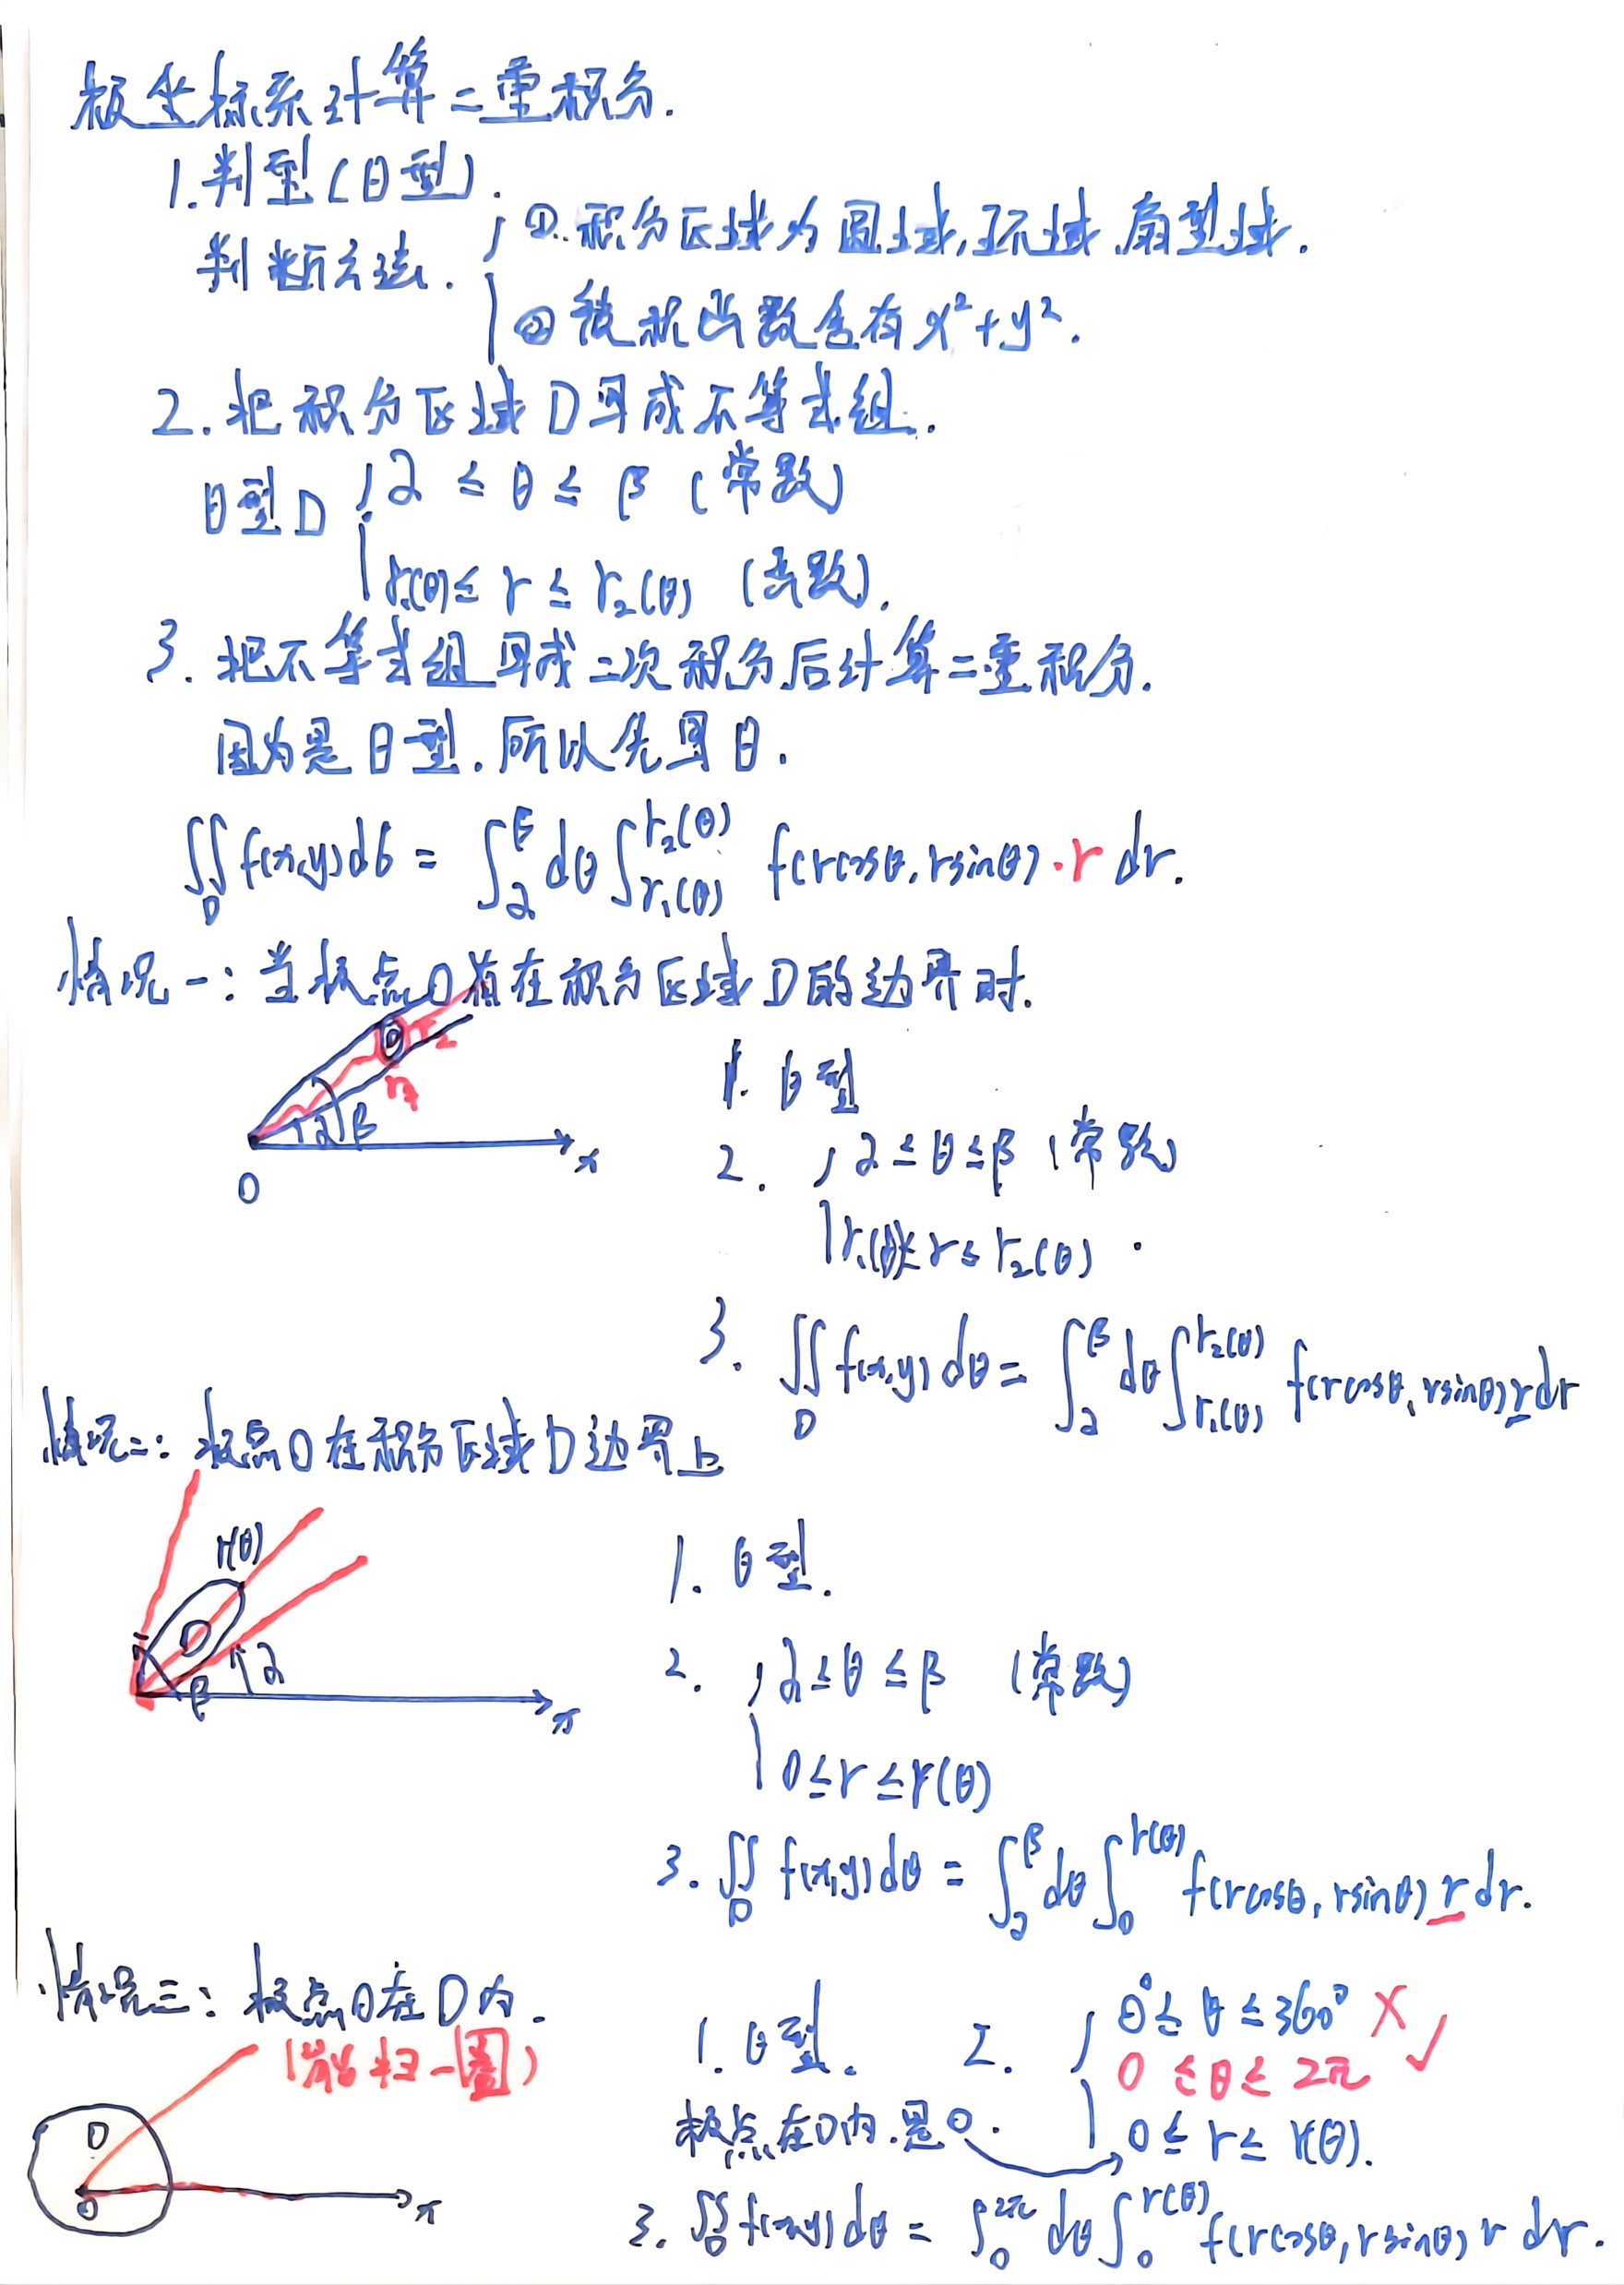 极坐标系计算二重积分.
1.判型(θ型).
判断方法. { ①.积分区域为圆域,环域,扇型域.
②被积函数含有x²+y².
2.把积分区域D写成不等式组.
θ型D { α ≤ θ ≤ β (常数)
r₁(θ)≤ r ≤ r₂(θ) (函数).
3.把不等式组写成二次积分后计算二重积分.
因为是θ型.所以先写θ.
∬_D f(x,y)dσ = ∫_α^β dθ ∫_{r₁(θ)}^{r₂(θ)} f(rcosθ,rsinθ)·r dr.
情况一:当极点O 在积分区域D的边界时.
D r₂
r₁
α β
x
O
1. θ型
2. { α≤θ≤β (常数)
r₁(θ)≤r≤r₂(θ).
3. ∬_D f(x,y)dθ = ∫_α^β dθ ∫_{r₁(θ)}^{r₂(θ)} f(rcosθ,rsinθ)rdr
情况二:极点O在积分区域D边界上
r(θ)
D
β α
x
1. θ型.
2. { α≤θ≤β (常数)
0≤r≤r(θ)
3. ∬_D f(x,y)dθ = ∫_α^β dθ ∫_0^{r(θ)} f(rcosθ,rsinθ) r dr.
情况三:极点O在D内.
(能扫一圈)
D
O
x
1. θ型. 2. { 0°≤θ≤360° ✗
0 ≤θ≤ 2π ✓
极点在D内.是0. 0≤r≤ r(θ).
3. ∬_D f(x,y)dθ = ∫_0^{2π} dθ ∫_0^{r(θ)} f(rcosθ,rsinθ) r dr.